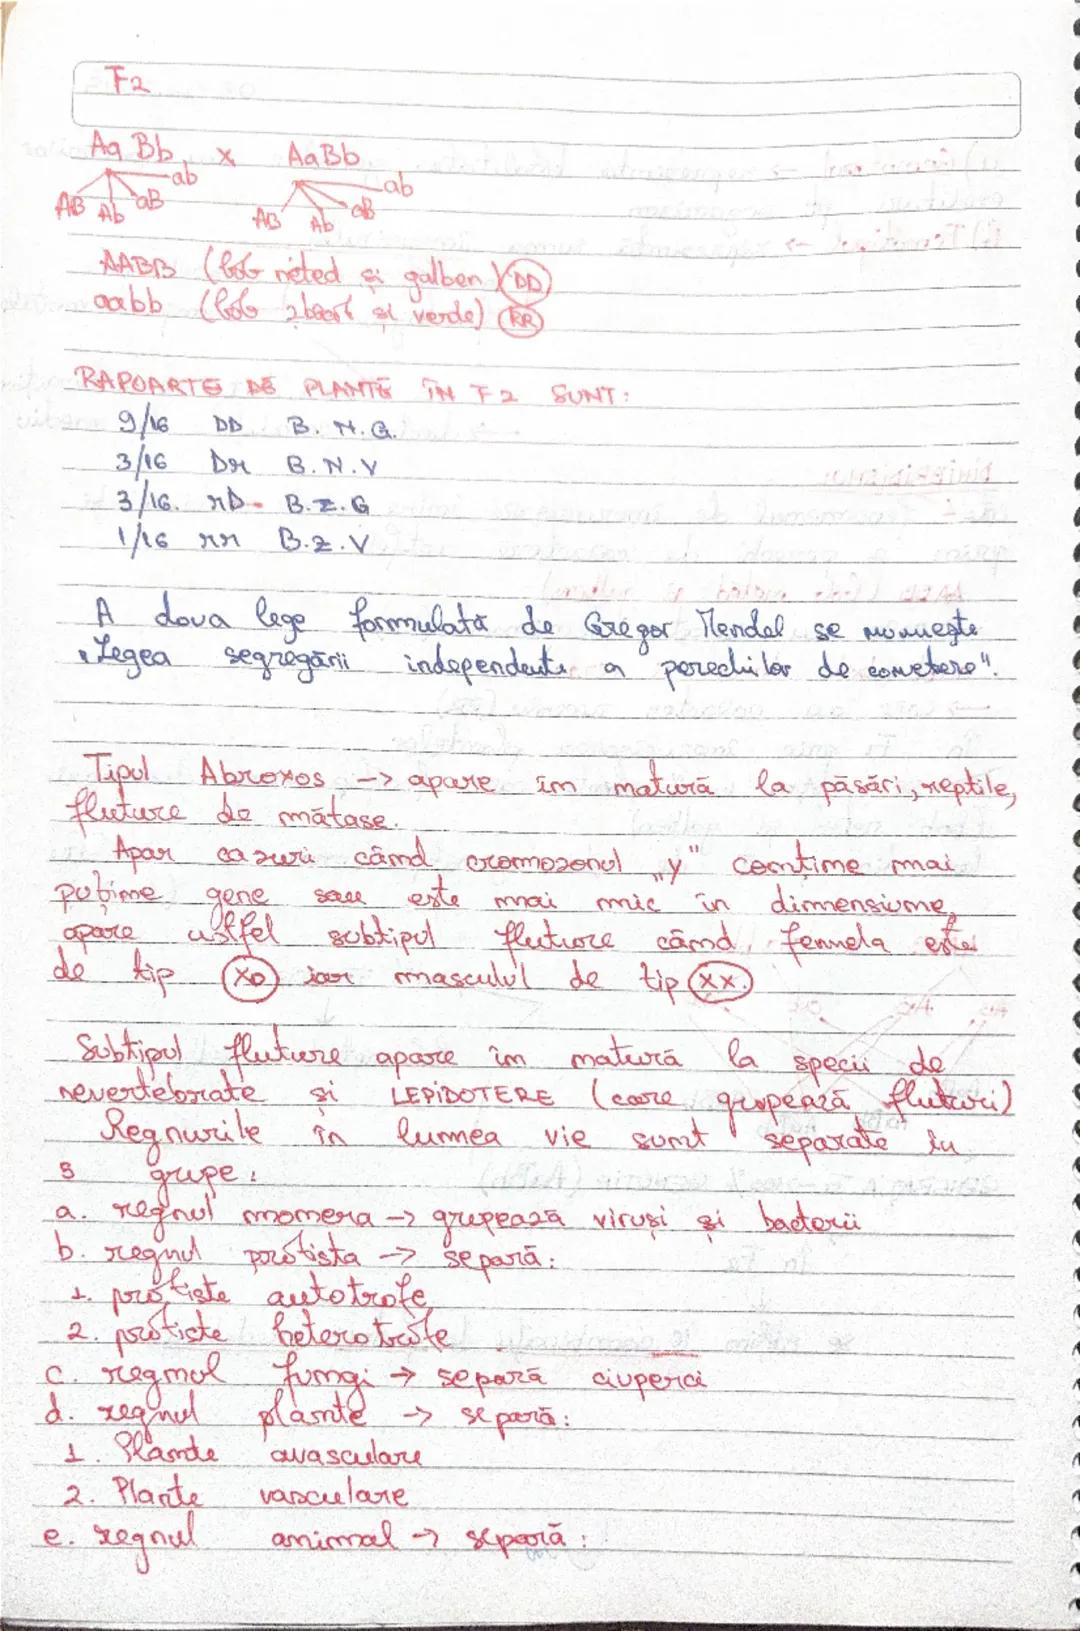 F2
Aa Bb x AaBb
AB Ab aB ab AB Ab aB ab
AABB (bob neted și galben) DD
aabb (bob zbârcit și verde) RR
RAPOARTE DE PLANTE ÎN F2 SUNT:
9/16 DD B. N. G.
3/16 Dr B. N. V
3/16. rD- B. z. G
1/16 rr B. z. V
A doua lege formulată de Gregor Mendel se numește
"Legea segregării independente a perechilor de caractere".
Tipul Abraxas -> apare în natură la păsări, reptile,
fluture de mătase.
Apar cazuri când cromozonul "y" conține mai
puține gene sau este mai mic în dimensiune,
apare astfel subtipul fluture când femela este
de tip XO iar masculul de tip XX.
Subtipul fluture apare în natură la specii de
nevertebrate și LEPIDOTERE (care grupează fluturi)
Regnurile în lumea vie sunt separate în
5 grupe:
a. regnul monera -> grupează viruși și bacterii
b. regnul protista -> separă:
1. protiste autotrofe
2. protiste heterotrofe
c. regnul fungi -> separă ciuperci
d. regnul plante -> separă:
1. Plante avasculare
2. Plante vasculare
e. regnul animal -> separă: